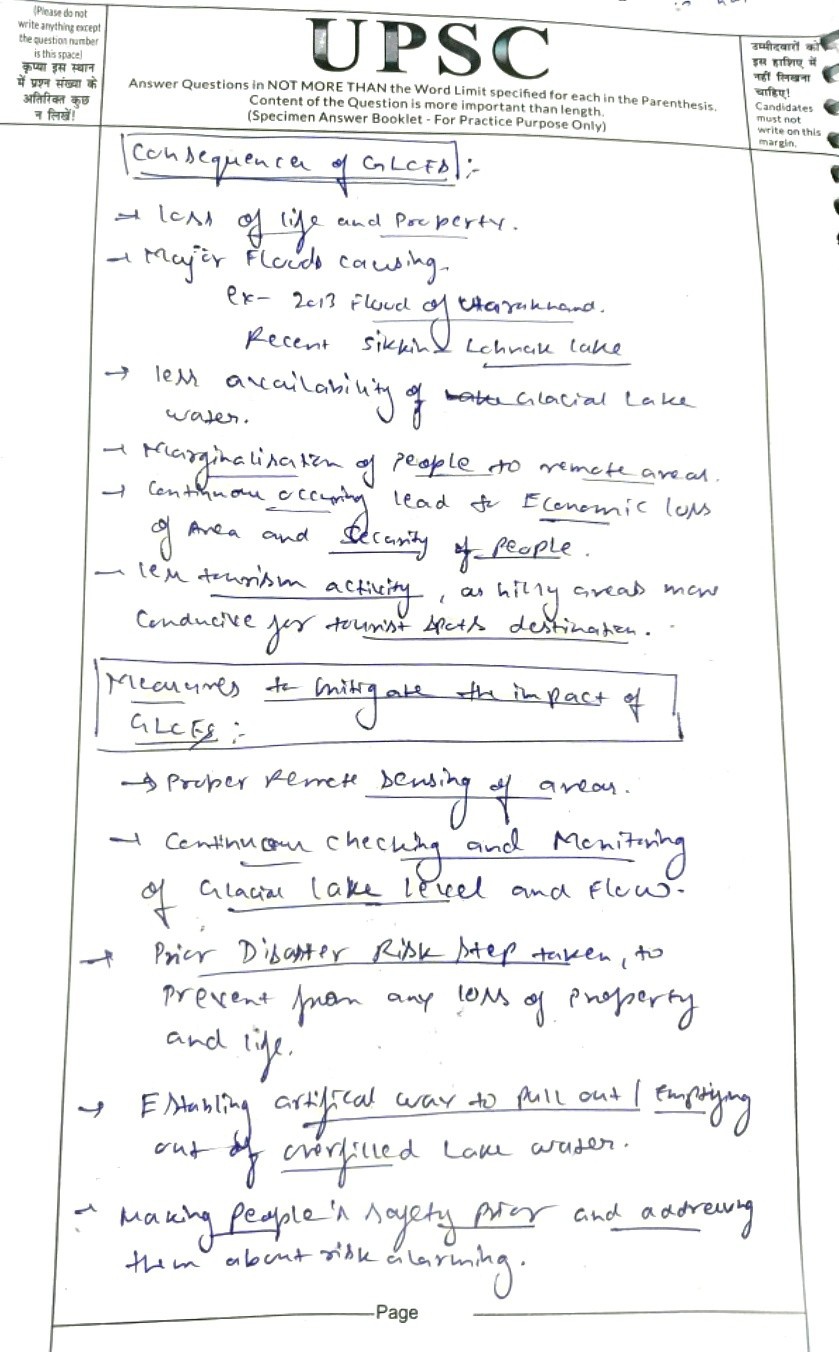 (Please do not
write anything except
the question number
is this space)
कृप्या इस स्थान
में प्रश्न संख्या के
अतिरिक्त कुछ
न लिखें!
UPSC
Answer Questions in NOT MORE THAN the Word Limit specified for each in the Parenthesis.
Content of the Question is more important than length.
(Specimen Answer Booklet - For Practice Purpose Only)
उम्मीदवारों को
इस हाशिए में
नहीं लिखना
चाहिए!
Candidates
must not
write on this
margin.
Consequences of GLOFs :-
→ loss of life and Property.
→ Major Floods causing.
ex- 2013 Flood of Uttarakhand.
Recent Sikkim Lohnak lake
→ less availability of Glacial Lake
water.
→ Marginalisation of People to remote areas.
→ Continuous occuring lead to Economic loss
of Area and Security of People.
→ less tourism activity, as hilly areas more
Conducive for tourist spots destination.
Measures to mitigate the impact of
GLOFs :-
→ Proper Remote Sensing of areas.
→ Continuous checking and Monitoring
of Glacial lake level and Flow.
→ Prior Disaster Risk step taken, to
Prevent from any loss of Property
and life.
→ artifical way to pull out / Emptying
out of overfilled Lake water.
→ Making People's safety prior and
them about risk alarming.
Page